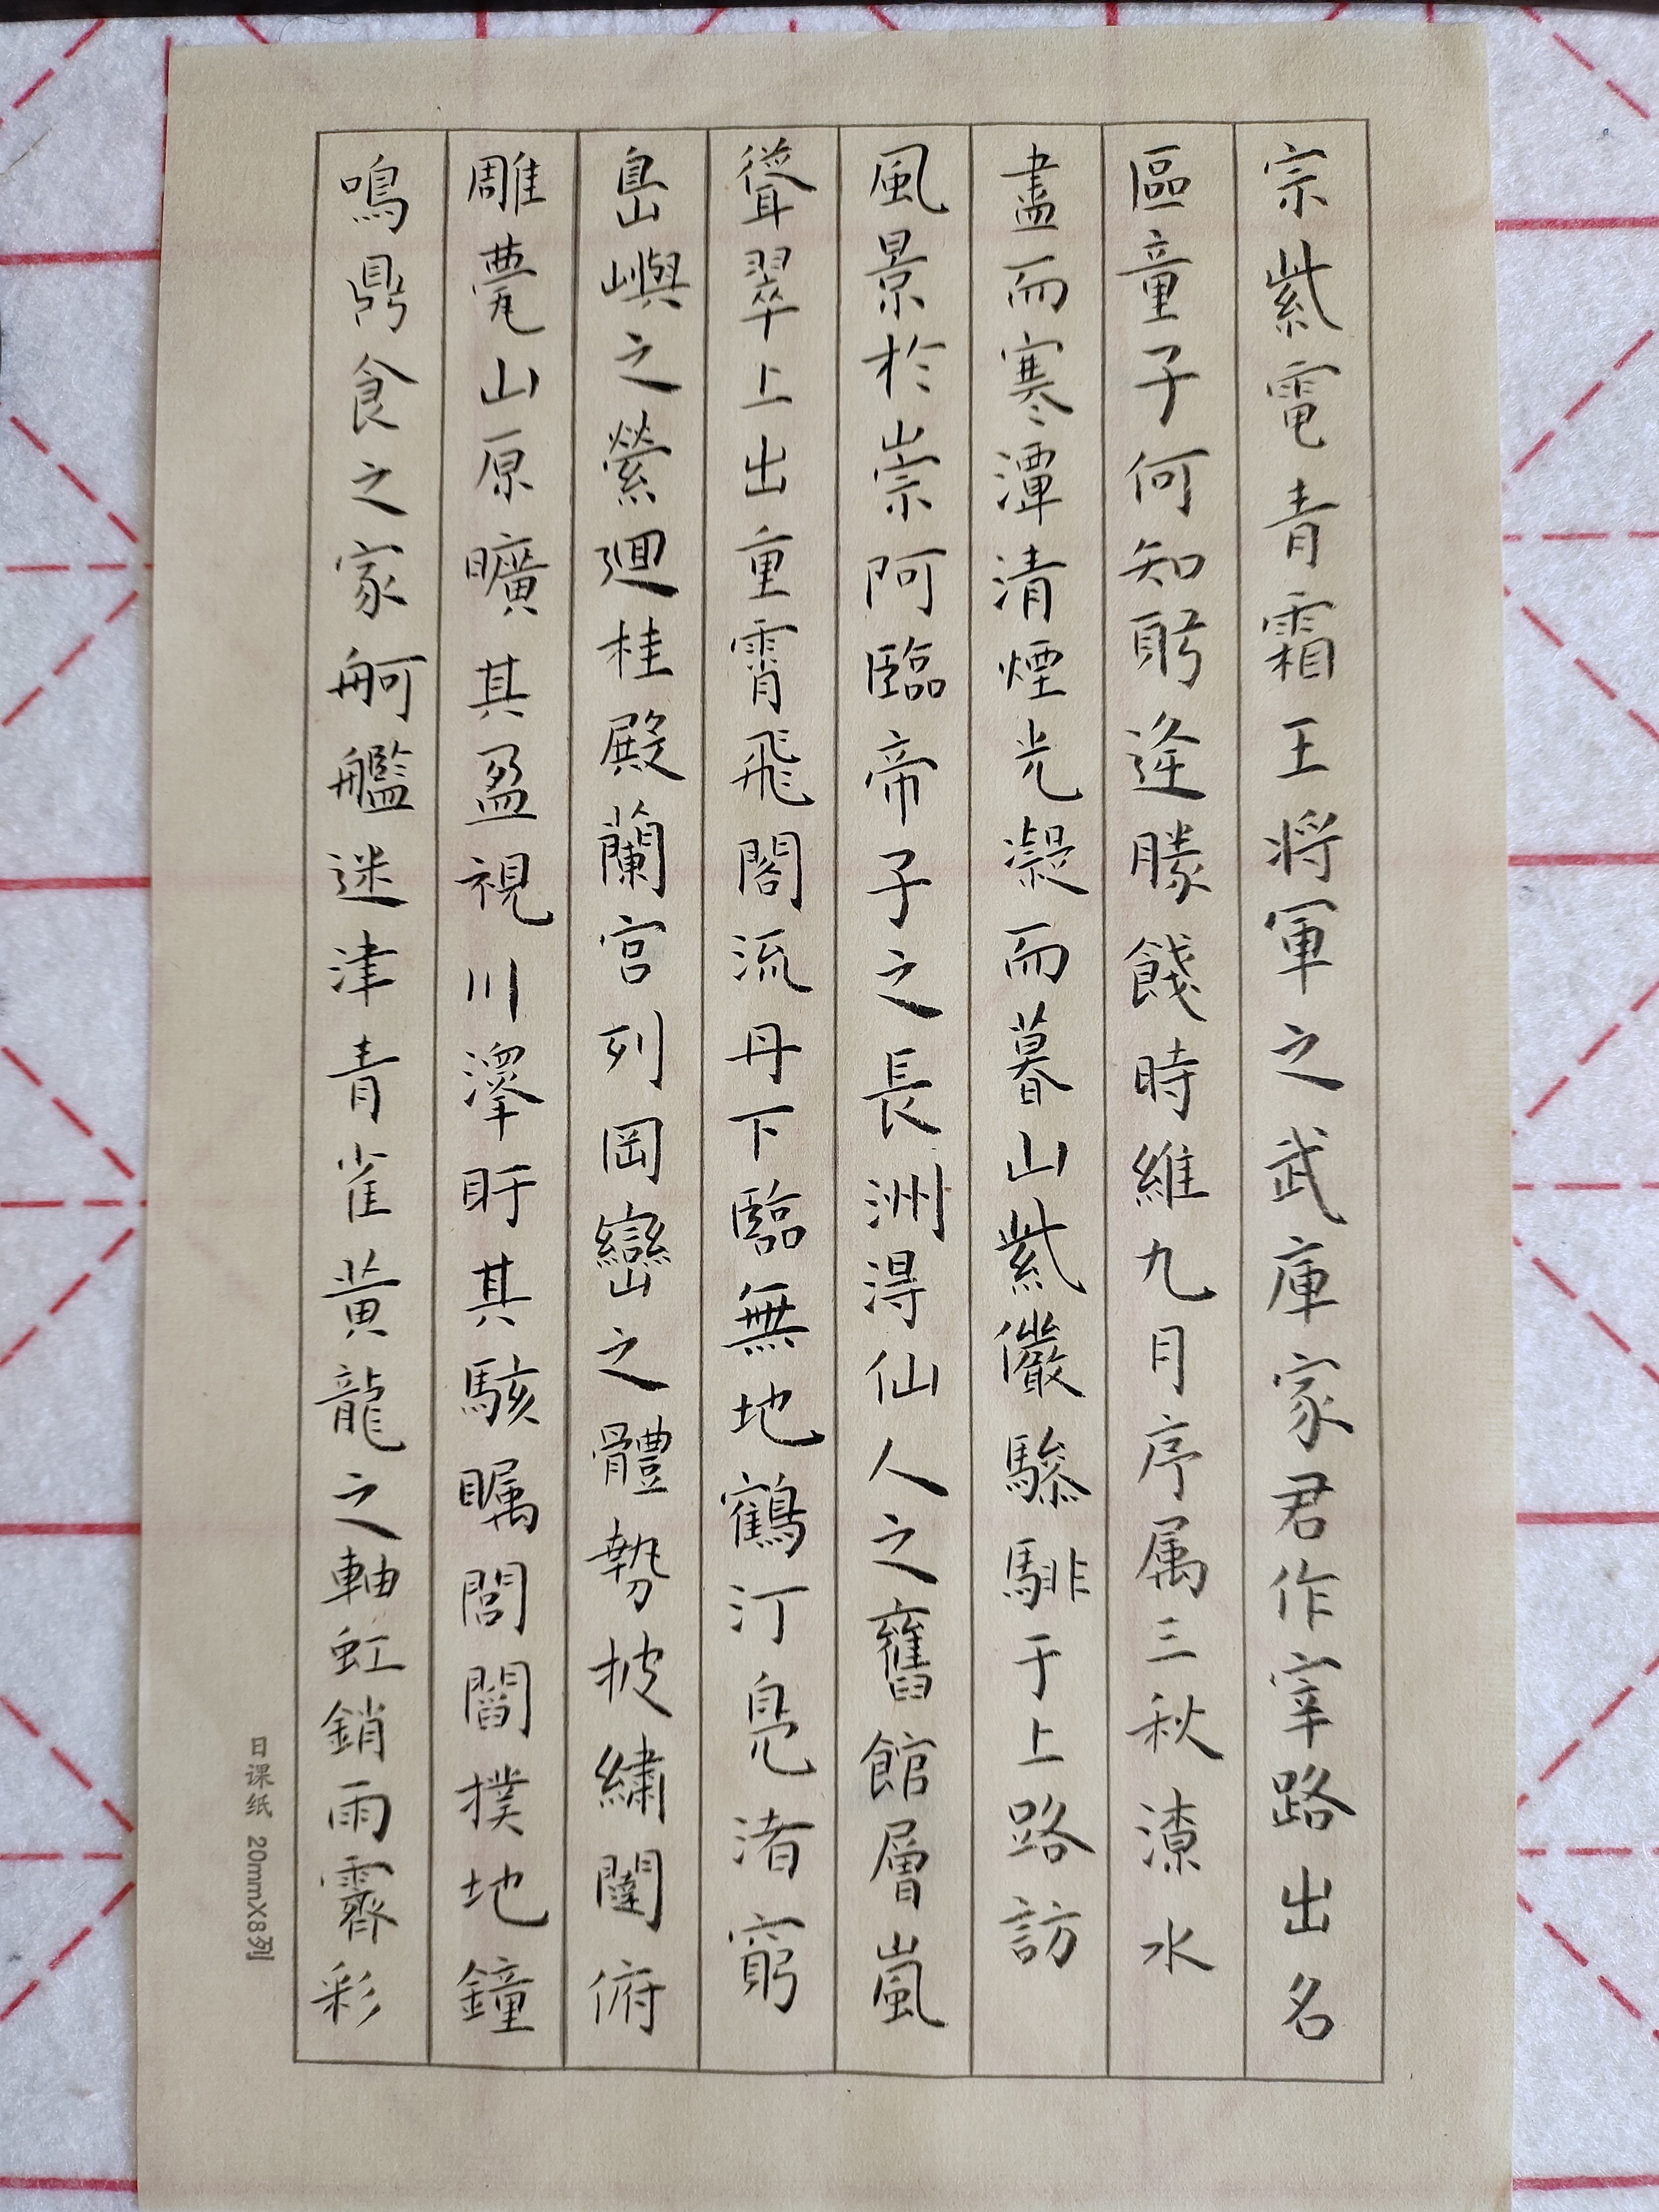 宗紫電青霜王将軍之武庫家君作宰路出名
區童子何知躬逢勝餞時維九月序属三秋潦水
盡而寒潭清煙光凝而暮山紫儼驂騑于上路訪
風景於崇阿臨帝子之長洲得仙人之舊館層嵐
聳翠上出重霄飛閣流丹下臨無地鶴汀凫渚窮
島嶼之縈迴桂殿蘭宫列岡巒之體勢披繡闥俯
雕甍山原曠其盈視川澤盱其駭矚閭閻撲地鐘
鳴鼎食之家舸艦迷津青雀黄龍之軸虹銷雨霽彩
日课纸 20mmX8列